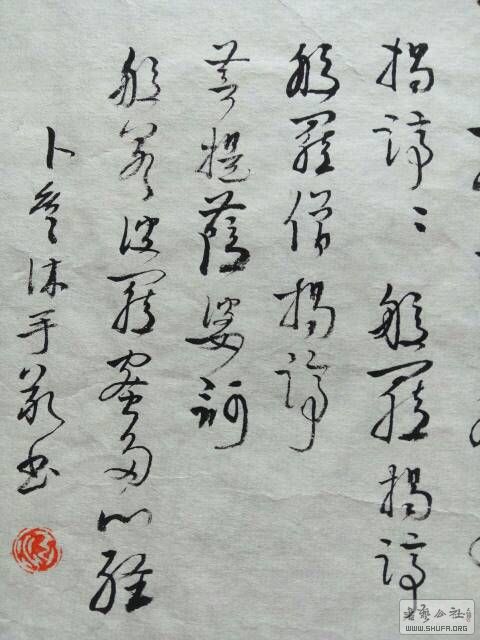 揭諦〻般羅揭諦
般羅僧揭諦
菩提薩婆訶
般若波羅蜜多心經
卜沐手敬書
書藝公社
WWW.SHUFA.ORG